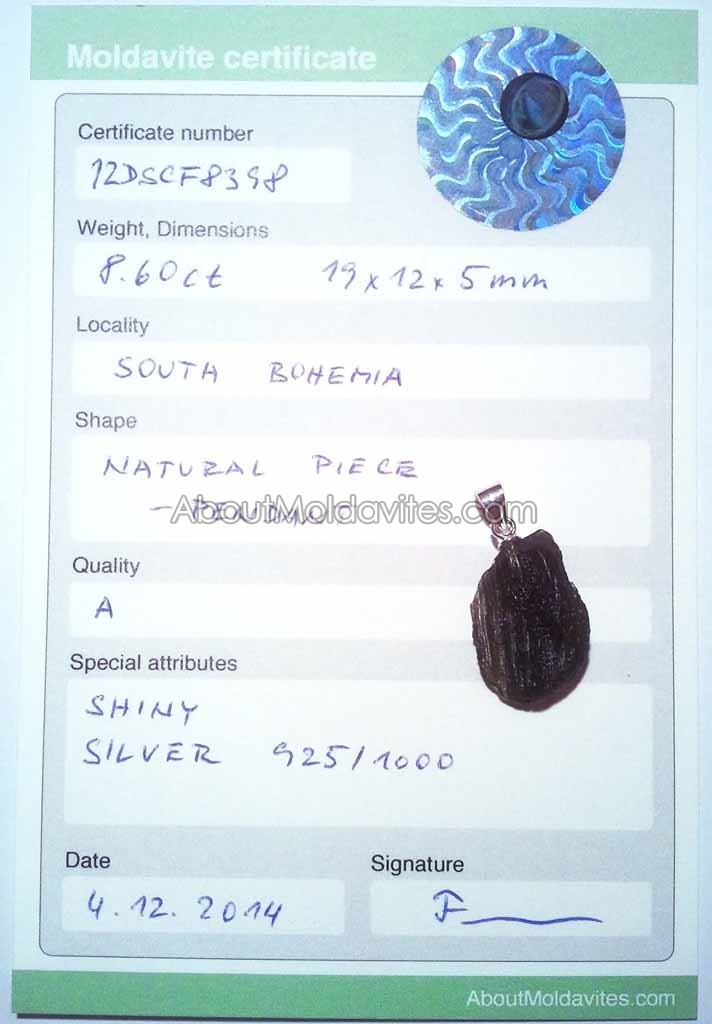 Moldavite certificate
Certificate number
12DSCF8398
Weight, Dimensions
8.60ct 19 x 12 x 5 mm
Locality
SOUTH BOHEMIA
Shape
NATURAL PIECE
- PENDANT
AboutMoldavites.com
Quality
A
Special attributes
SHINY
SILVER 925/1000
Date
Signature
4.12.2014
AboutMoldavites.com